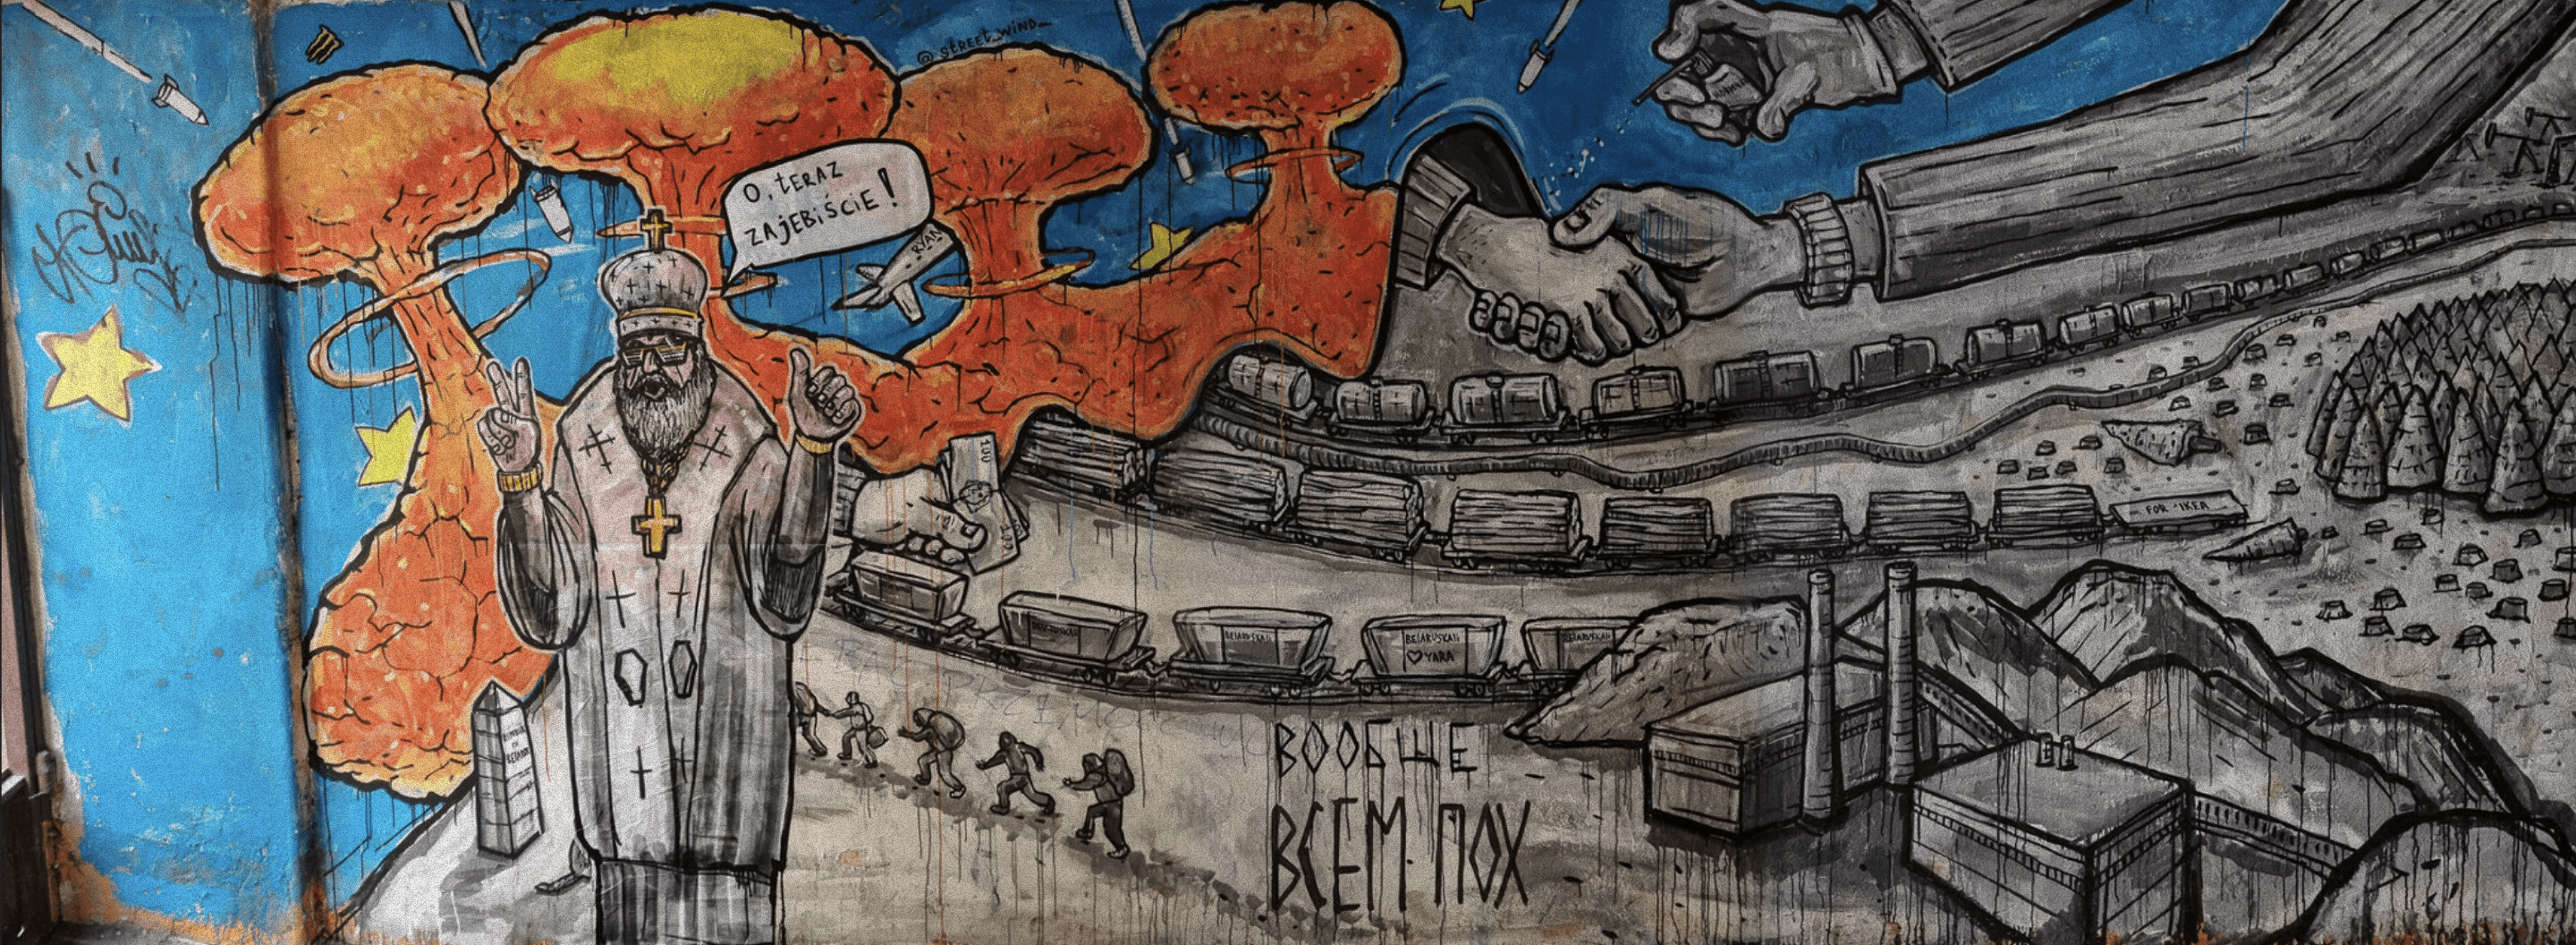 @_STREET_WIND_
О, TERAZ
ZAJEBIŚCIE!
RYAN
100
FOR IKEA
BELARUSKALI
BELARUSKALI
BELARUSKALI
♡ YARA
BELARUSKALI
ВООБЩЕ
ВСЕМ ПОХ